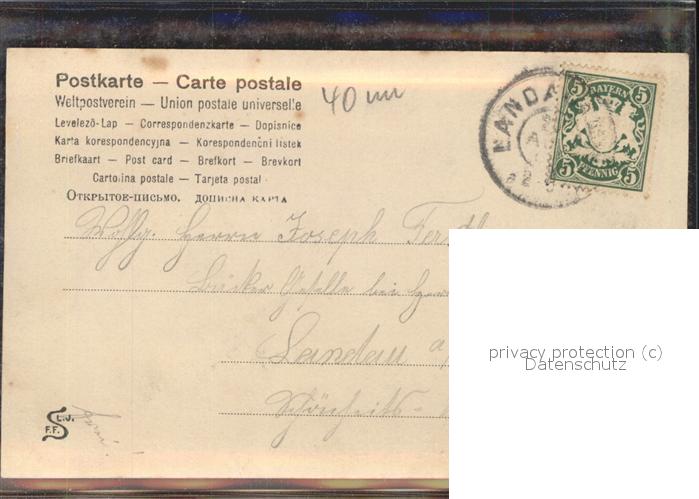 Postkarte — Carte postale
Weltpostverein — Union postale universelle
Levelező-Lap — Correspondenzkarte — Dopisnice
Karta korespondencyjna — Korespondenčni listek
Briefkaart — Post card — Brefkort — Brevkort
Cartolina postale — Tarjeta postal
Открытое-письмо. дописна карта
40
LANDA
5 BAYERN 5
5 PFENNIG 5
Herrn Joseph
Bäcker Geselle bei
Landau a/
L.J.
F.F.
privacy protection (c)
Datenschutz